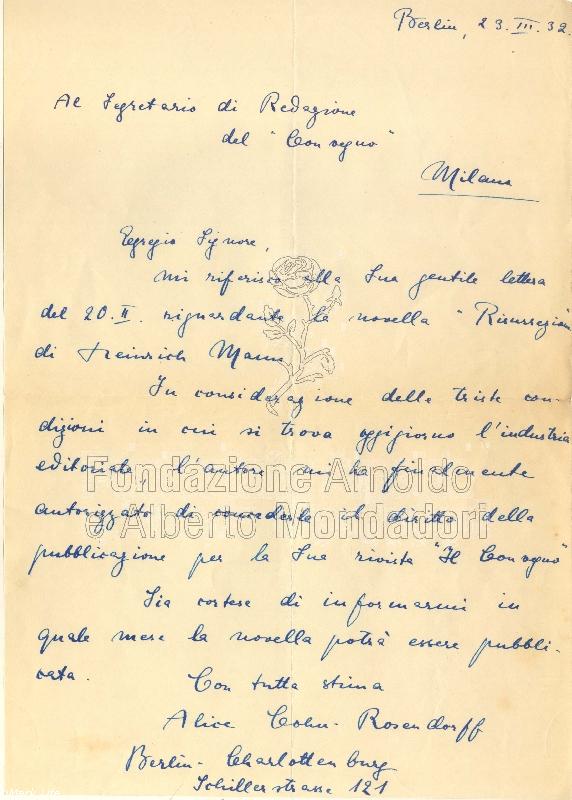 Berlin, 23. III. 32.
Al Segretario di Redazione
del "Convegno"
Milano
Egregio Signore,
mi riferisco alla Sua gentile lettera
del 20. II. riguardante la novella "Risurrezione"
di Heinrich Mann.
In considerazione delle triste con-
dizioni in cui si trova oggigiorno l'industria
editoriale, l'autore mi ha finalmente
autorizzato di concederle il diritto della
pubblicazione per la Sua rivista "Il Convegno"
Sia cortese di informarmi in
quale mese la novella potrà essere pubbli-
cata.
Con tutta stima
Alice Cohn-Rosendorff
Berlin-Charlottenburg
Schillerstrasse 121
Fondazione Arnoldo
e Alberto Mondadori